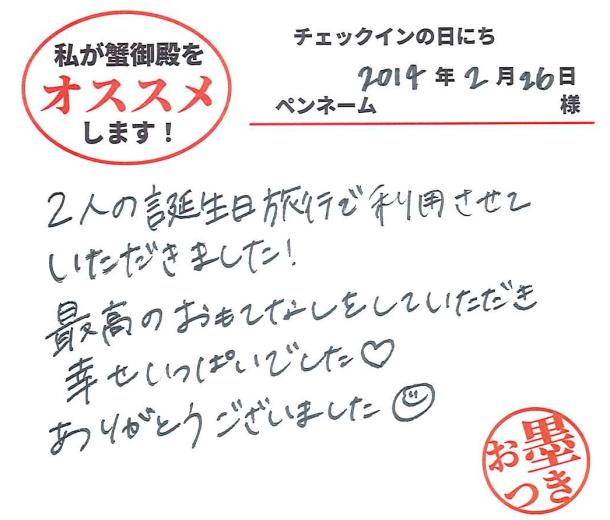 私が蟹御殿を
オススメ
します！
チェックインの日にち
2019年2月26日
ペンネーム 様
2人の誕生日旅行で利用させて
いただきました!
最高のおもてなしをしていただき
幸せいっぱいでした♡
ありがとうございました☺
お墨
つき